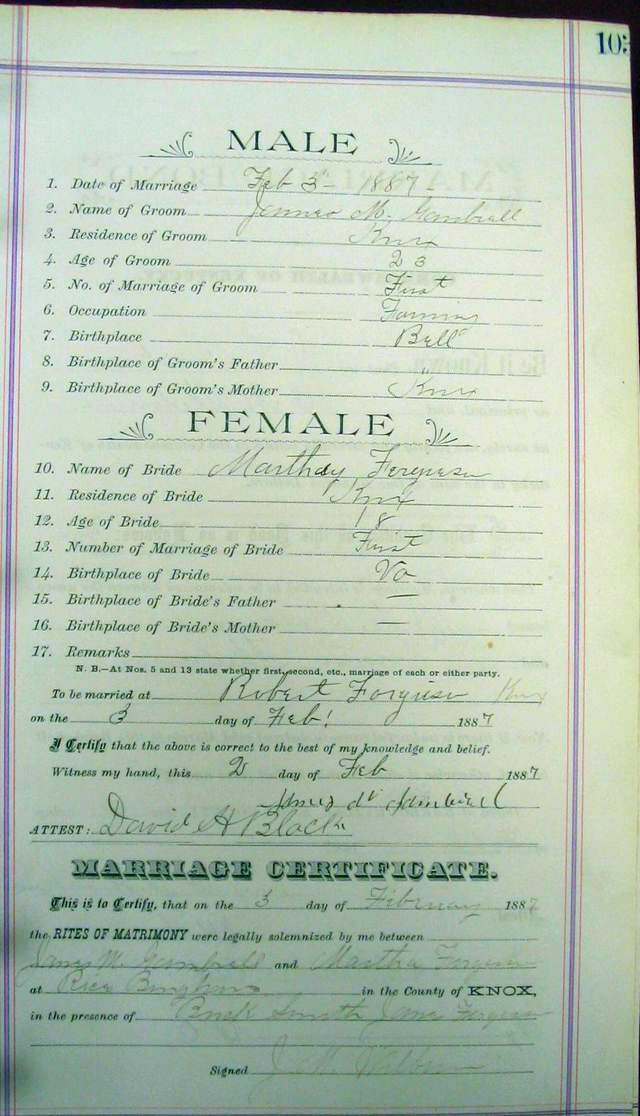 105
MALE
1. Date of Marriage Feb 3 - 1887
2. Name of Groom James M. Gambrell
3. Residence of Groom Knox
4. Age of Groom 23
5. No. of Marriage of Groom First
6. Occupation Farming
7. Birthplace Bell
8. Birthplace of Groom's Father
9. Birthplace of Groom's Mother Knox
FEMALE
10. Name of Bride Marthay Ferguson
11. Residence of Bride Knox
12. Age of Bride 18
13. Number of Marriage of Bride First
14. Birthplace of Bride Va
15. Birthplace of Bride's Father —
16. Birthplace of Bride's Mother —
17. Remarks
N. B.—At Nos. 5 and 13 state whether first, second, etc., marriage of each or either party.
To be married at Robert Forguson Knox
on the 3 day of Feb! 1887
I Certify that the above is correct to the best of my knowledge and belief.
Witness my hand, this 2 day of Feb 1887
James M Gambrell
ATTEST: David H Black
MARRIAGE CERTIFICATE.
This is to Certify, that on the 3 day of February 1887
the RITES OF MATRIMONY were legally solemnized by me between
James M Gambrell and Martha Forguson
at Bingham in the County of KNOX,
in the presence of Buck Smith Jane Ferguson
Signed J. Wilburn